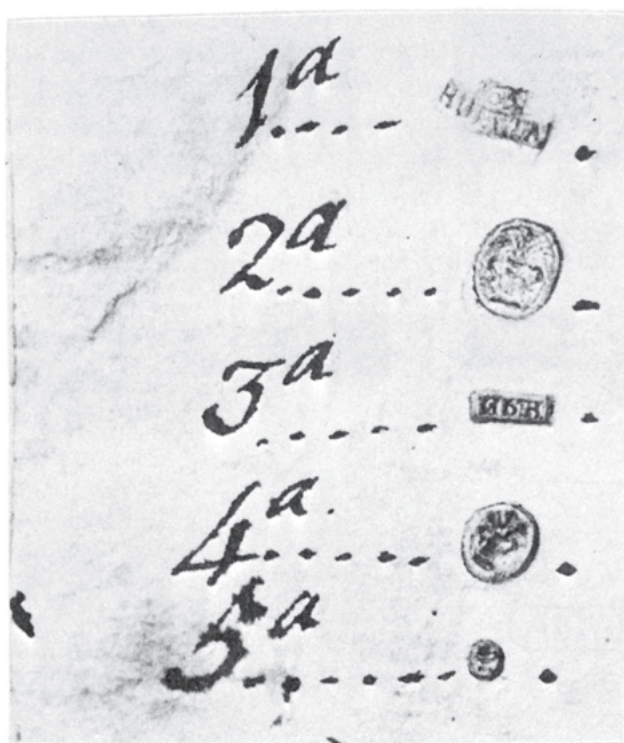 1ª.....
2ª......
3ª......
4ª......
5ª........